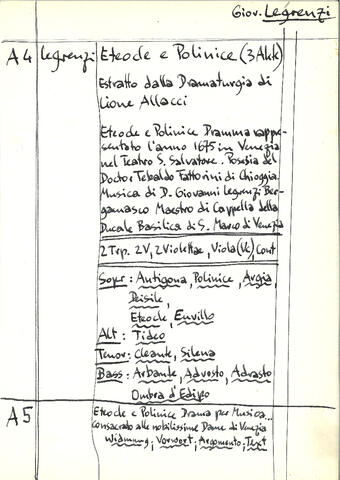 Giov. Legrenzi
A4 Legrenzi Eteocle e Polinice (3 Akk)
Estratto dalla Dramaturgia di
Lione Allacci
Eteocle e Polinice Dramma rappre-
sentato l'anno 1675 in Venezia
nel Teatro S. Salvatore. Poesia del
Doctor Tebaldo Fattorini di Chioggia.
Musica di D. Giovanni Legrenzi Ber-
gamasco Maestro di Cappella della
Ducale Basilica di S. Marco di Venezia
2 Trp. 2V, 2 Violettae, Viola (Vc) Cont
Sopr: Antigona, Polinice, Argia,
Deisile,
Eteocle, Enrillo
Alt: Tideo
Tenor: Cleante, Silena
Bass: Arbante, Advesto, Adrasto
Ombra d'Edipo
A5 Eteocle e Polinice Drama per Musica...
consacrato alle nobilissime Dame di Venezia
Widmung, Vorwort, Argomento, Text